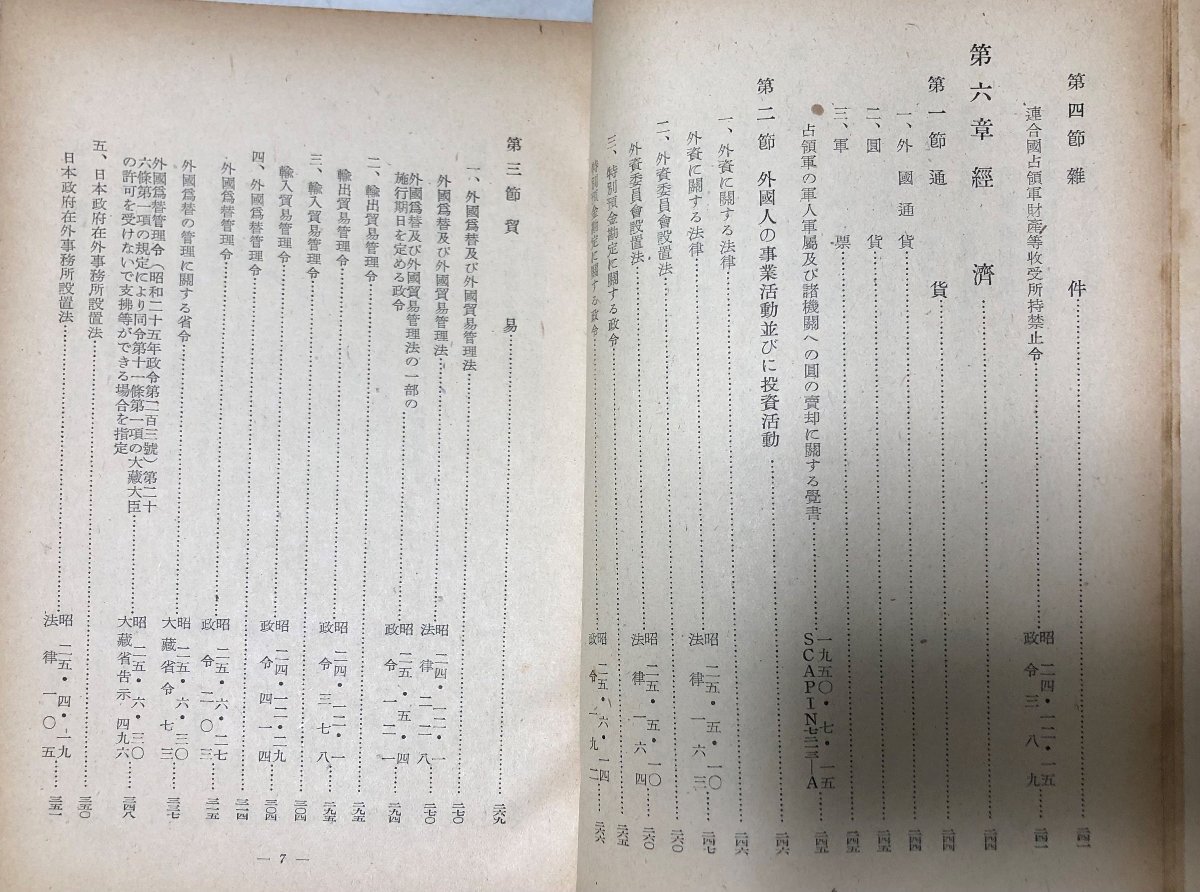 第四節 雜件……二四一
連合國占領軍財產等收受所持禁止令……昭二四・一二・一五 政令三八九……二四一
第六章 經濟……二四四
第一節 通貨……二四四
一、外國通貨……二四四
二、圓貨……二四五
三、軍票……二四五
占領軍の軍人軍屬及び諸機關への圓の賣却に關する覺書……一九五〇・七・一五 SCAPIN七二三―A……二四五
第二節 外國人の事業活動並びに投資活動……二四六
一、外資に關する法律……二四六
外資に關する法律……昭二五・五・一〇 法律一六三……二四七
二、外資委員會設置法……二六〇
外資委員會設置法……昭二五・五・一〇 法律一六四……二六〇
三、特別預金勘定に關する政令……二六五
特別預金勘定に關する政令……昭二五・六・一四 政令一九二……二六六
第三節 貿易……二六九
一、外國爲替及び外國貿易管理法……二七〇
外國爲替及び外國貿易管理法……昭二四・一二・一 法律二二八……二七〇
外國爲替及び外國貿易管理法の一部の
施行期日を定める政令……昭二五・五・四 政令一二一……二九四
二、輸出貿易管理令……二九五
輸出貿易管理令……昭二四・一二・一 政令三七八……二九五
三、輸入貿易管理令……三〇四
輸入貿易管理令……昭二四・一二・二九 政令四一四……三〇四
四、外國爲替管理令……三一四
外國爲替管理令……昭二五・六・二七 政令二〇三……三一五
外國爲替の管理に關する省令……昭二五・六・三〇 大藏省令七三……三三七
外國爲替管理令(昭和二十五年政令第二百三號)第二十
六條第一項の規定により同令第十一條第一項の大藏大臣
の許可を受けないで支拂等ができる場合を指定……昭二五・六・三〇 大藏省告示四九六……三四八
五、日本政府在外事務所設置法……三五〇
日本政府在外事務所設置法……昭二五・四・一九 法律一〇五……三五一
― 7 ―